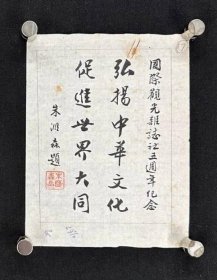 國際觀光雜誌社五週年紀念
弘揚中華文化
促進世界大同
朱淮森題